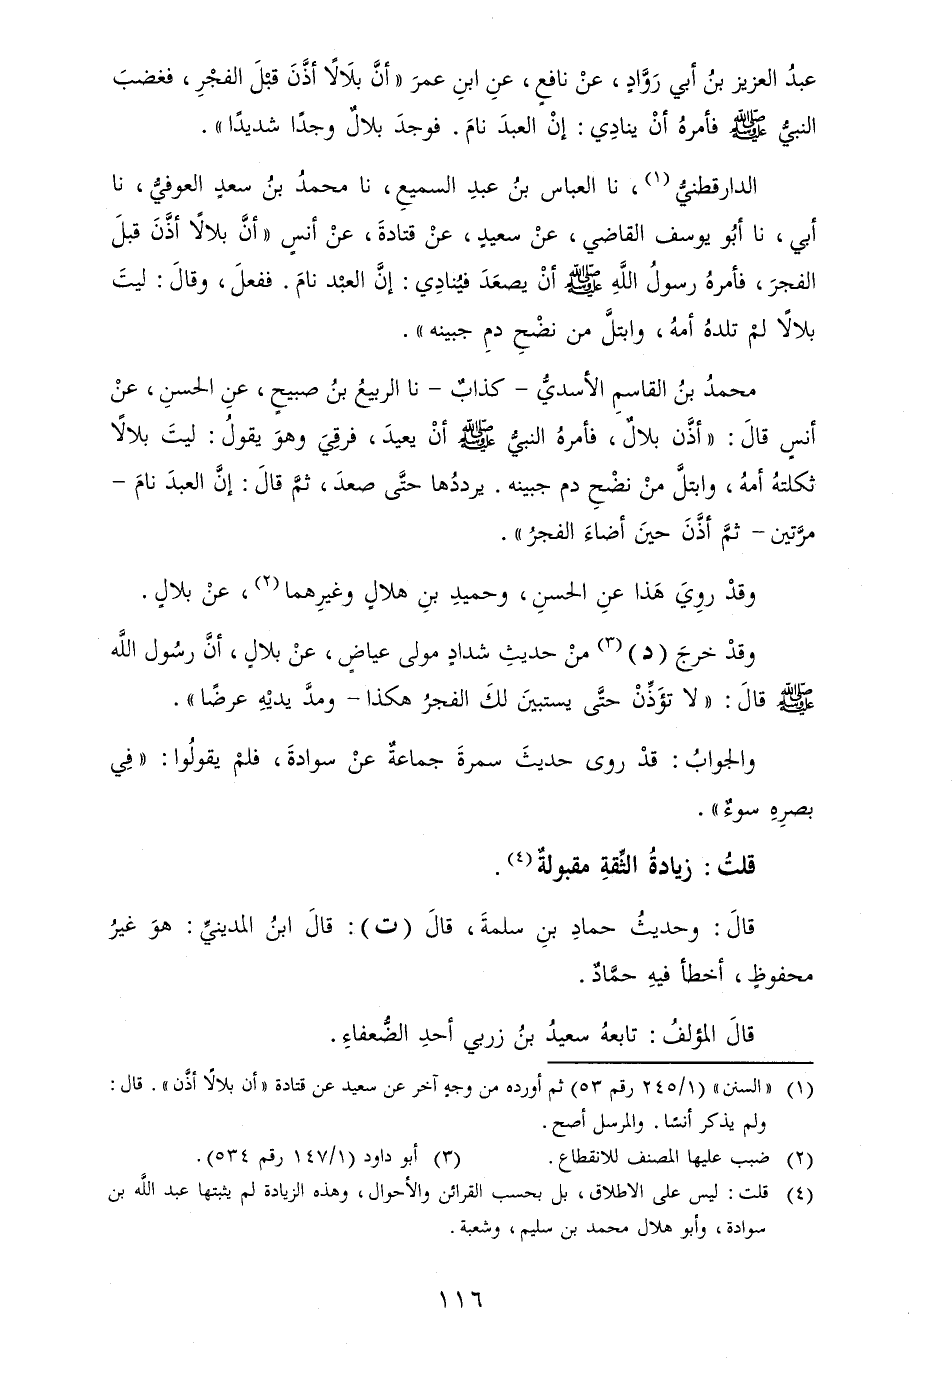 عبدُ العزيز بنُ أبي رَوَّادٍ ، عنْ نافعٍ ، عنِ ابنِ عمرَ « أنَّ بلَالًا أذَّنَ قبْلَ الفجْرِ ، فغضبَ
النبيُّ ﷺ فأمرهُ أنْ ينادِي : إنْ العبدَ نامَ . فوجدَ بلالٌ وجدًا شديدًا » .
الدارقطنيُّ (١) ، نا العباس بنُ عبدِ السميعِ ، نا محمدُ بنُ سعدٍ العوفيُّ ، نا
أبي ، نا أبُو يوسف القاضي ، عنْ سعيدٍ ، عنْ قتادةَ ، عنْ أنسٍ « أنَّ بلالًا أذَّنَ قبلَ
الفجرَ ، فأمرهُ رسولُ اللَّهِ ﷺ أنْ يصعَدَ فيُنادِي : إنَّ العبْد نامَ . ففعلَ ، وقالَ : ليتَ
بلالًا لمْ تلدهُ أمهُ ، وابتلَّ من نضْحِ دمِ جبينه » .
محمدُ بنُ القاسمِ الأسديُّ – كذابٌ – نا الربيعُ بنُ صبيحٍ ، عنِ الحسنِ ، عنْ
أنسٍ قالَ : « أذَّن بلالٌ ، فأمرهُ النبيُّ ﷺ أنْ يعيدَ ، فرقِيَ وهوَ يقولُ : ليتَ بلالًا
ثكلتهُ أمهُ ، وابتلَّ منْ نضْحِ دم جبينه . يرددُها حتَّى صعدَ ، ثمَّ قالَ : إنَّ العبدَ نامَ –
مرَّتين – ثمَّ أذَّنَ حينَ أضاءَ الفجرُ » .
وقدْ روِيَ هَذا عنِ الحسنِ ، وحميدِ بنِ هلالٍ وغيرِهما (٢) ، عنْ بلالٍ .
وقدْ خرجَ ( د ) (٣) منْ حديثِ شدادٍ مولى عياضٍ ، عنْ بلالٍ ، أنَّ رسُول اللَّه
ﷺ قالَ : « لا تؤَذِّنْ حتَّى يستبينَ لكَ الفجرُ هكذا – ومدَّ يديْهِ عرضًا » .
والجوابُ : قدْ روى حديثَ سمرةَ جماعةٌ عنْ سوادةَ ، فلمْ يقولُوا : « فِي
بصرِهِ سوءٌ » .
قلتُ : زيادةُ الثِّقةِ مقبولةٌ (٤) .
قالَ : وحديثُ حمادِ بنِ سلمةَ ، قالَ ( ت ) : قالَ ابنُ المدينيِّ : هوَ غيرُ
محفوظٍ ، أخطأ فيهِ حمَّادٌ .
قالَ المؤلفُ : تابعهُ سعيدُ بنُ زربي أحدِ الضُّعفاءِ .
(١) « السنن » (٢٤٥/١ رقم ٥٣) ثم أورده من وجهٍ آخر عن سعيد عن قتادة « أن بلالًا أذَّن » . قال :
ولم يذكر أنسًا . والمرسل أصح .
(٢) ضبب عليها المصنف للانقطاع . (٣) أبو داود (١٤٧/١ رقم ٥٣٤) .
(٤) قلت : ليس على الاطلاق ، بل بحسب القرائن والأحوال ، وهذه الزيادة لم يثبتها عبد اللَّه بن
سوادة ، وأبو هلال محمد بن سليم ، وشعبة .
١١٦